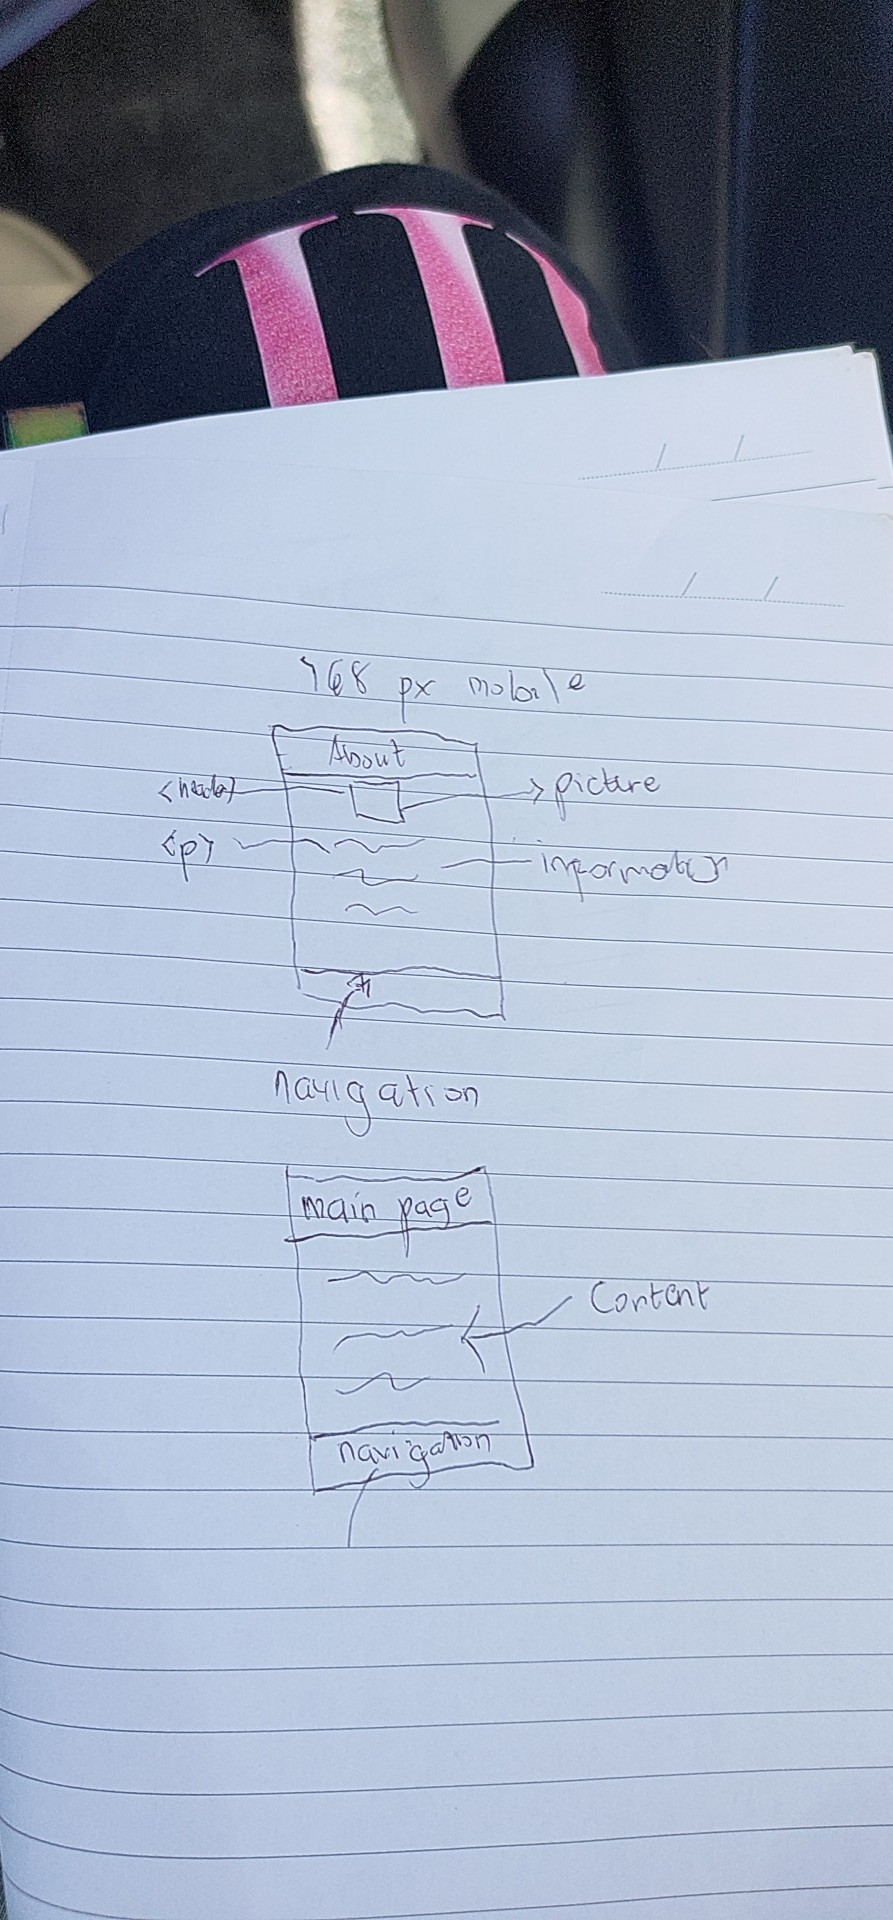 768 px mobile
About
<header>
picture
<p>
information
navigation
main page
Content
navigation